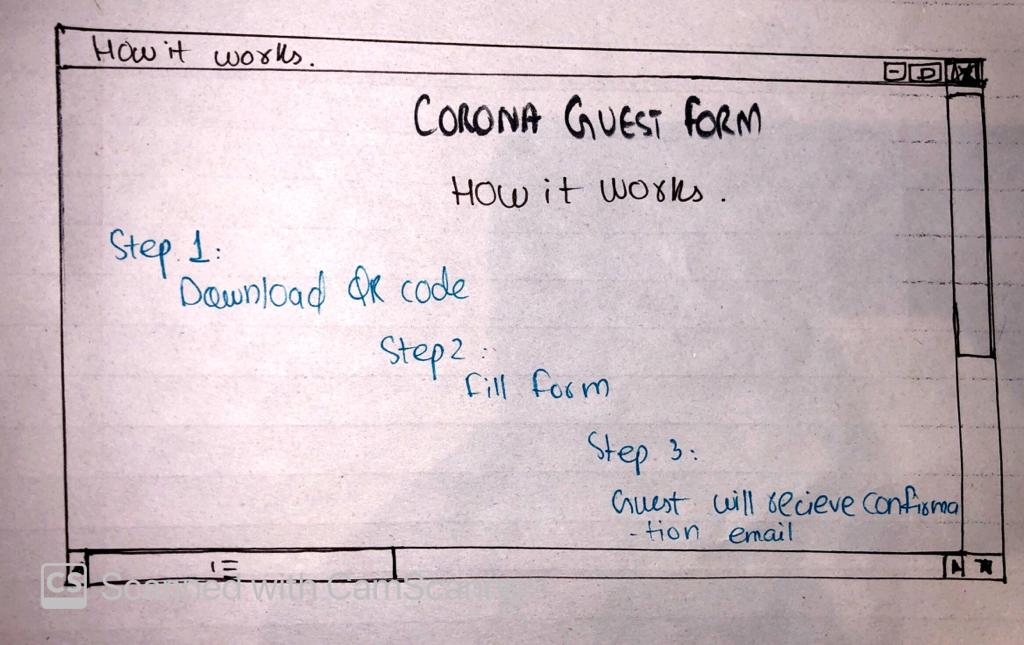 How it works.
CORONA GUEST FORM
How it works.
Step 1:
Download QR code
Step 2:
Fill form
Step 3:
Guest will recieve confirma
-tion email
CS Scanned with CamScanner